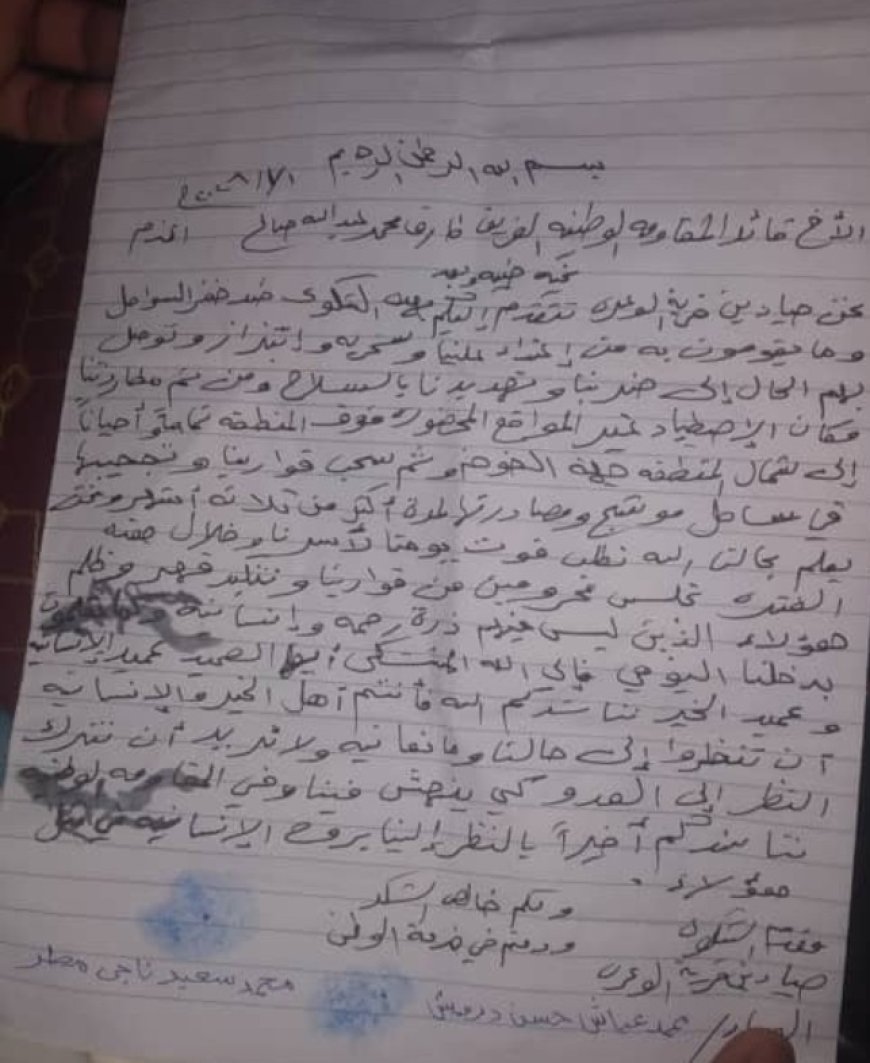 بسم الله الرحمن الرحيم
الأخ قائد المقاومه الوطنيه الفريق طارق محمد عبدالله صالح المحترم
تحيه طيبه وبعد
نحن صيادين قرية الوعره نتقدم إليكم بهذه الشكوى ضد خفر السواحل
وما يقومون به من إعتداء علينا وسخريه وإبتزاز وتوصل
بهم الحال إلى ضربنا وتهديدنا بالسلاح ومن ثم مطاردتنا
مكان الإصطياد غير المواقع المحضوره فوق المنطقه تماماً وأحياناً
إلى شمال المنطقه جهة الخوخه وثم سحب قواربنا وتحجيبها
في ساحل موشج ومصادرتها لمدة أكثر من ثلاثه أشهر ونحن
يعلم بحالنا الله نطلب قوت يومنا لأسرنا وخلال هذه
الفتره نجلس محرومين من قواربنا ونتلبد قهر وظلم
هؤلاء الذين ليس فيهم ذرة رحمه وإنسانيه
بدخلنا اليومي فإلى الله المشتكى أيها العميد عميد الإنسانيه
وعميد الخير نناشدكم الله فأنتم أهل الخير والإنسانيه
أن تنظروا إلى حالنا وما نعانيه ولا نريد أن نترك
النظر إلى العدو كي ينهش فينا وفي المقاومه الوطنيه
نناشدكم أخيراً بالنظر إلينا بروح الإنسانيه في
هؤلاء .
ولكم خالص الشكر
مقدم الشكوى ودمتم في خدمة الوطن
صيادين قرية الوعره
محمد سعيد ناجي مطر
محمد عياش حسن درويش